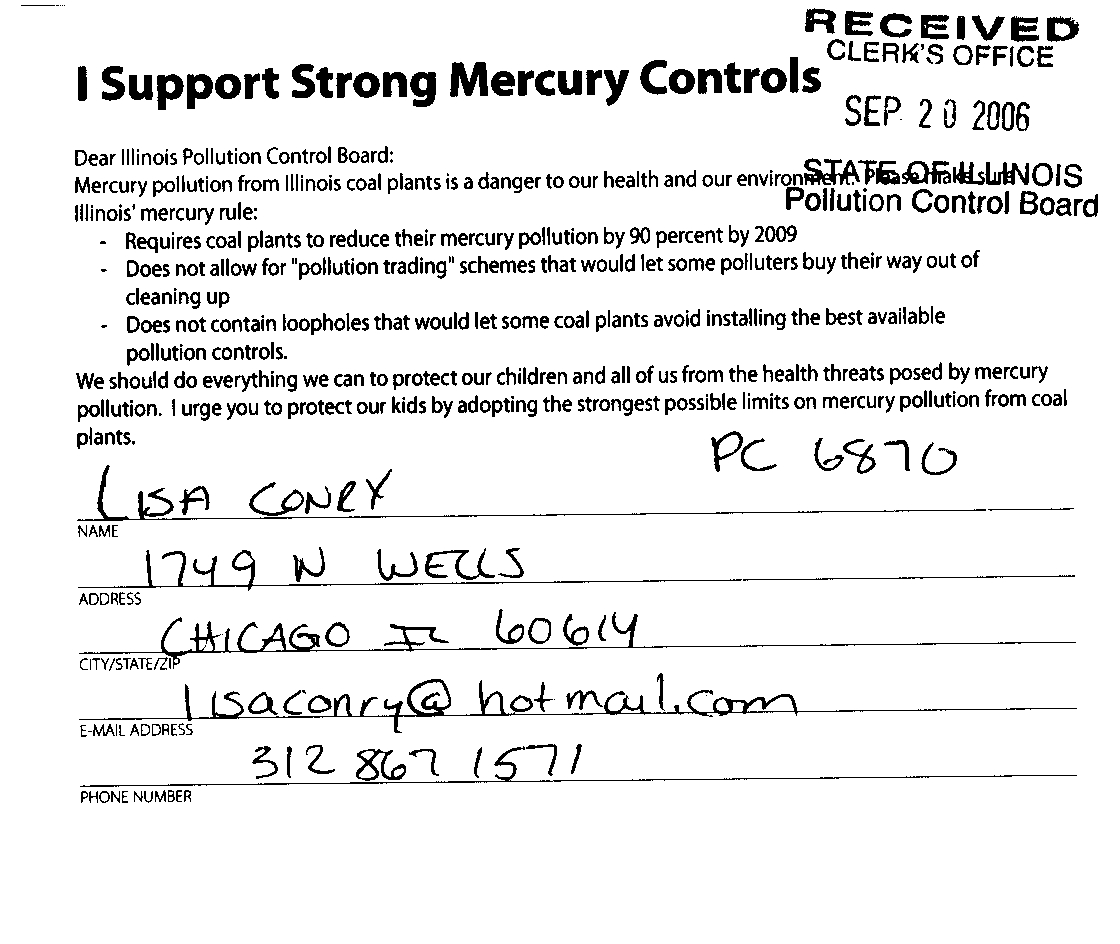 RECEIVED
CLERK'S OFFICE
I Support Strong Mercury Controls
SEP 20 2006
Dear Illinois Pollution Control Board:
STATE OF ILLINOIS
Mercury pollution from Illinois coal plants is a danger to our health and our environment. Please make sure
Pollution Control Board
Illinois' mercury rule:
- Requires coal plants to reduce their mercury pollution by 90 percent by 2009
- Does not allow for "pollution trading" schemes that would let some polluters buy their way out of
cleaning up
- Does not contain loopholes that would let some coal plants avoid installing the best available
pollution controls.
We should do everything we can to protect our children and all of us from the health threats posed by mercury
pollution. I urge you to protect our kids by adopting the strongest possible limits on mercury pollution from coal
plants.
PC 6870
LISA CONRY
NAME
1749 N WELLS
ADDRESS
CHICAGO IL 60614
CITY/STATE/ZIP
lisaconry@hotmail.com
E-MAIL ADDRESS
312 867 1571
PHONE NUMBER